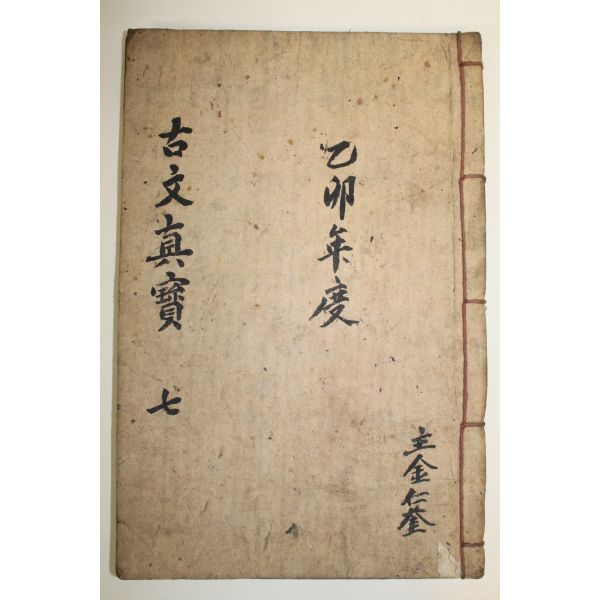 主金仁
乙卯年度
古文真寶 七